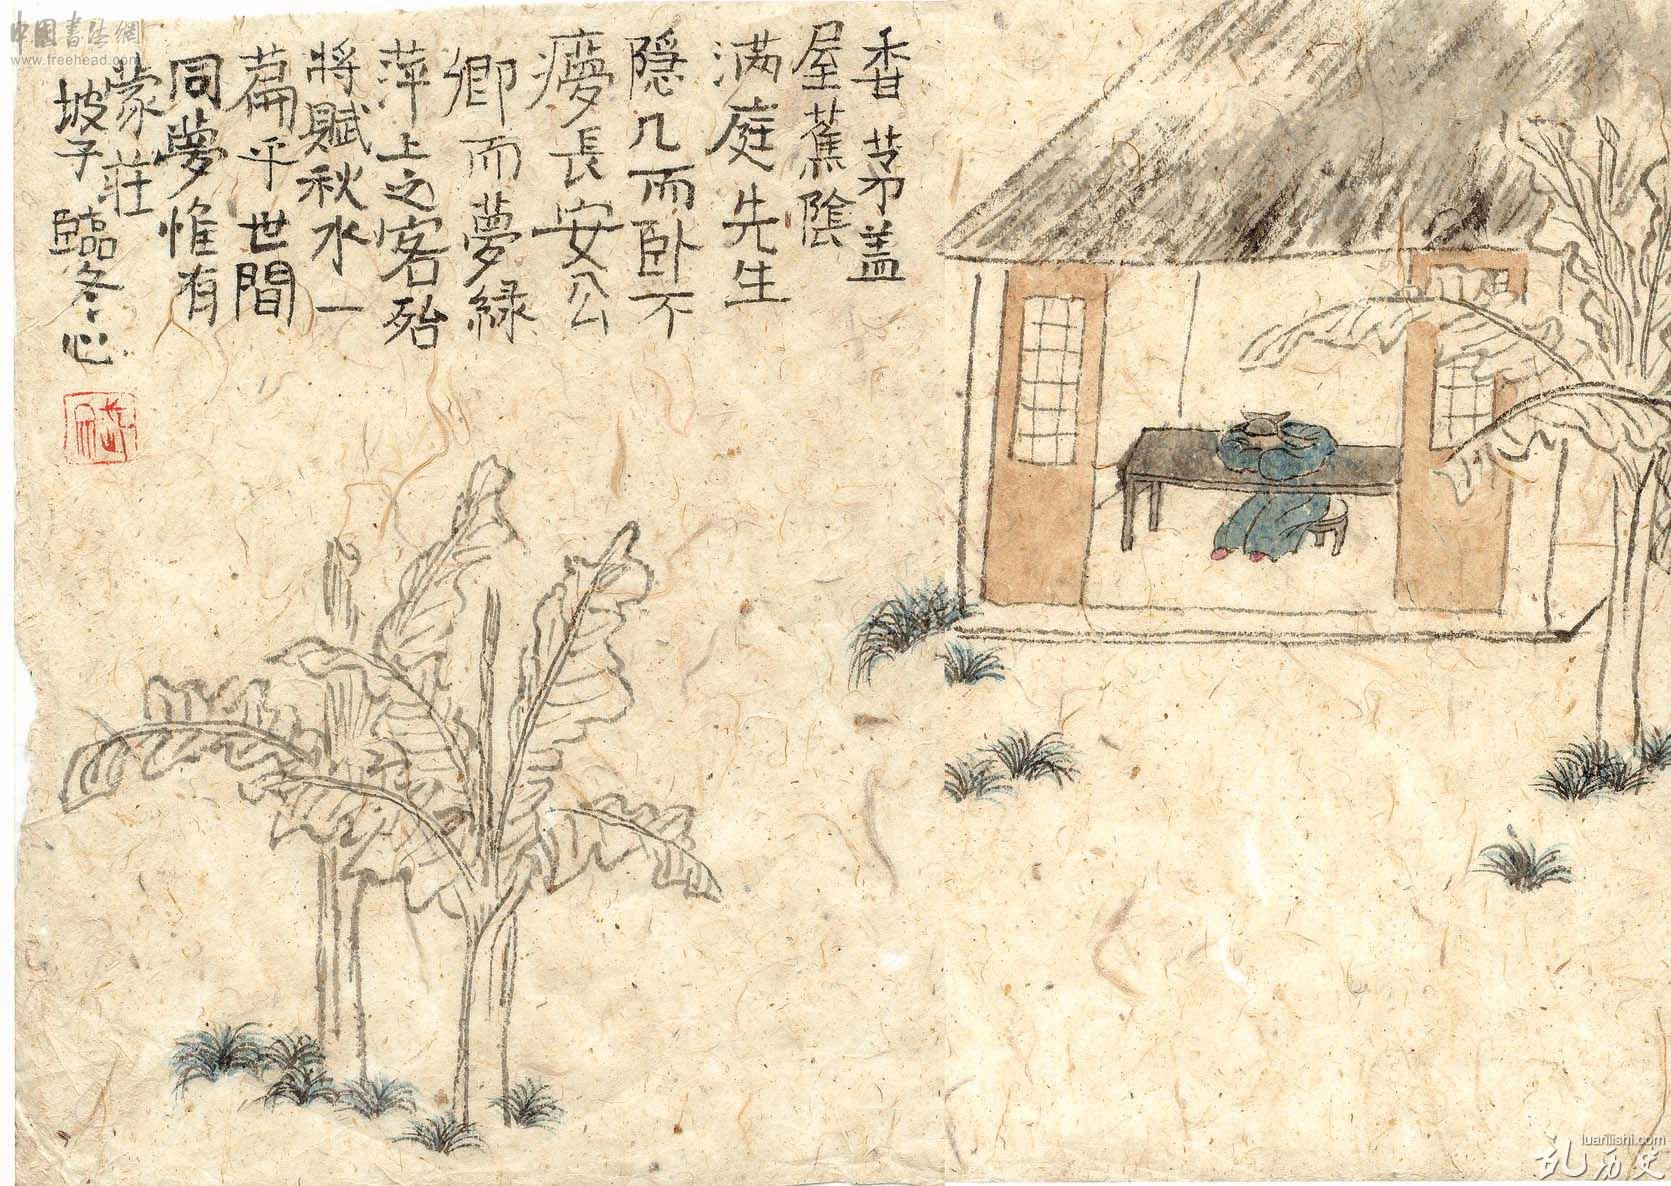 中国書法網
www.freehead.com
香茅盖
屋蕉陰
满庭先生
隐几而卧不
㝱長安公
卿而夢緑
萍上之客殆
將賦秋水一
篇乎世間
同夢惟有
蒙莊
坡子臨冬心
luanlishi.com
乱历史